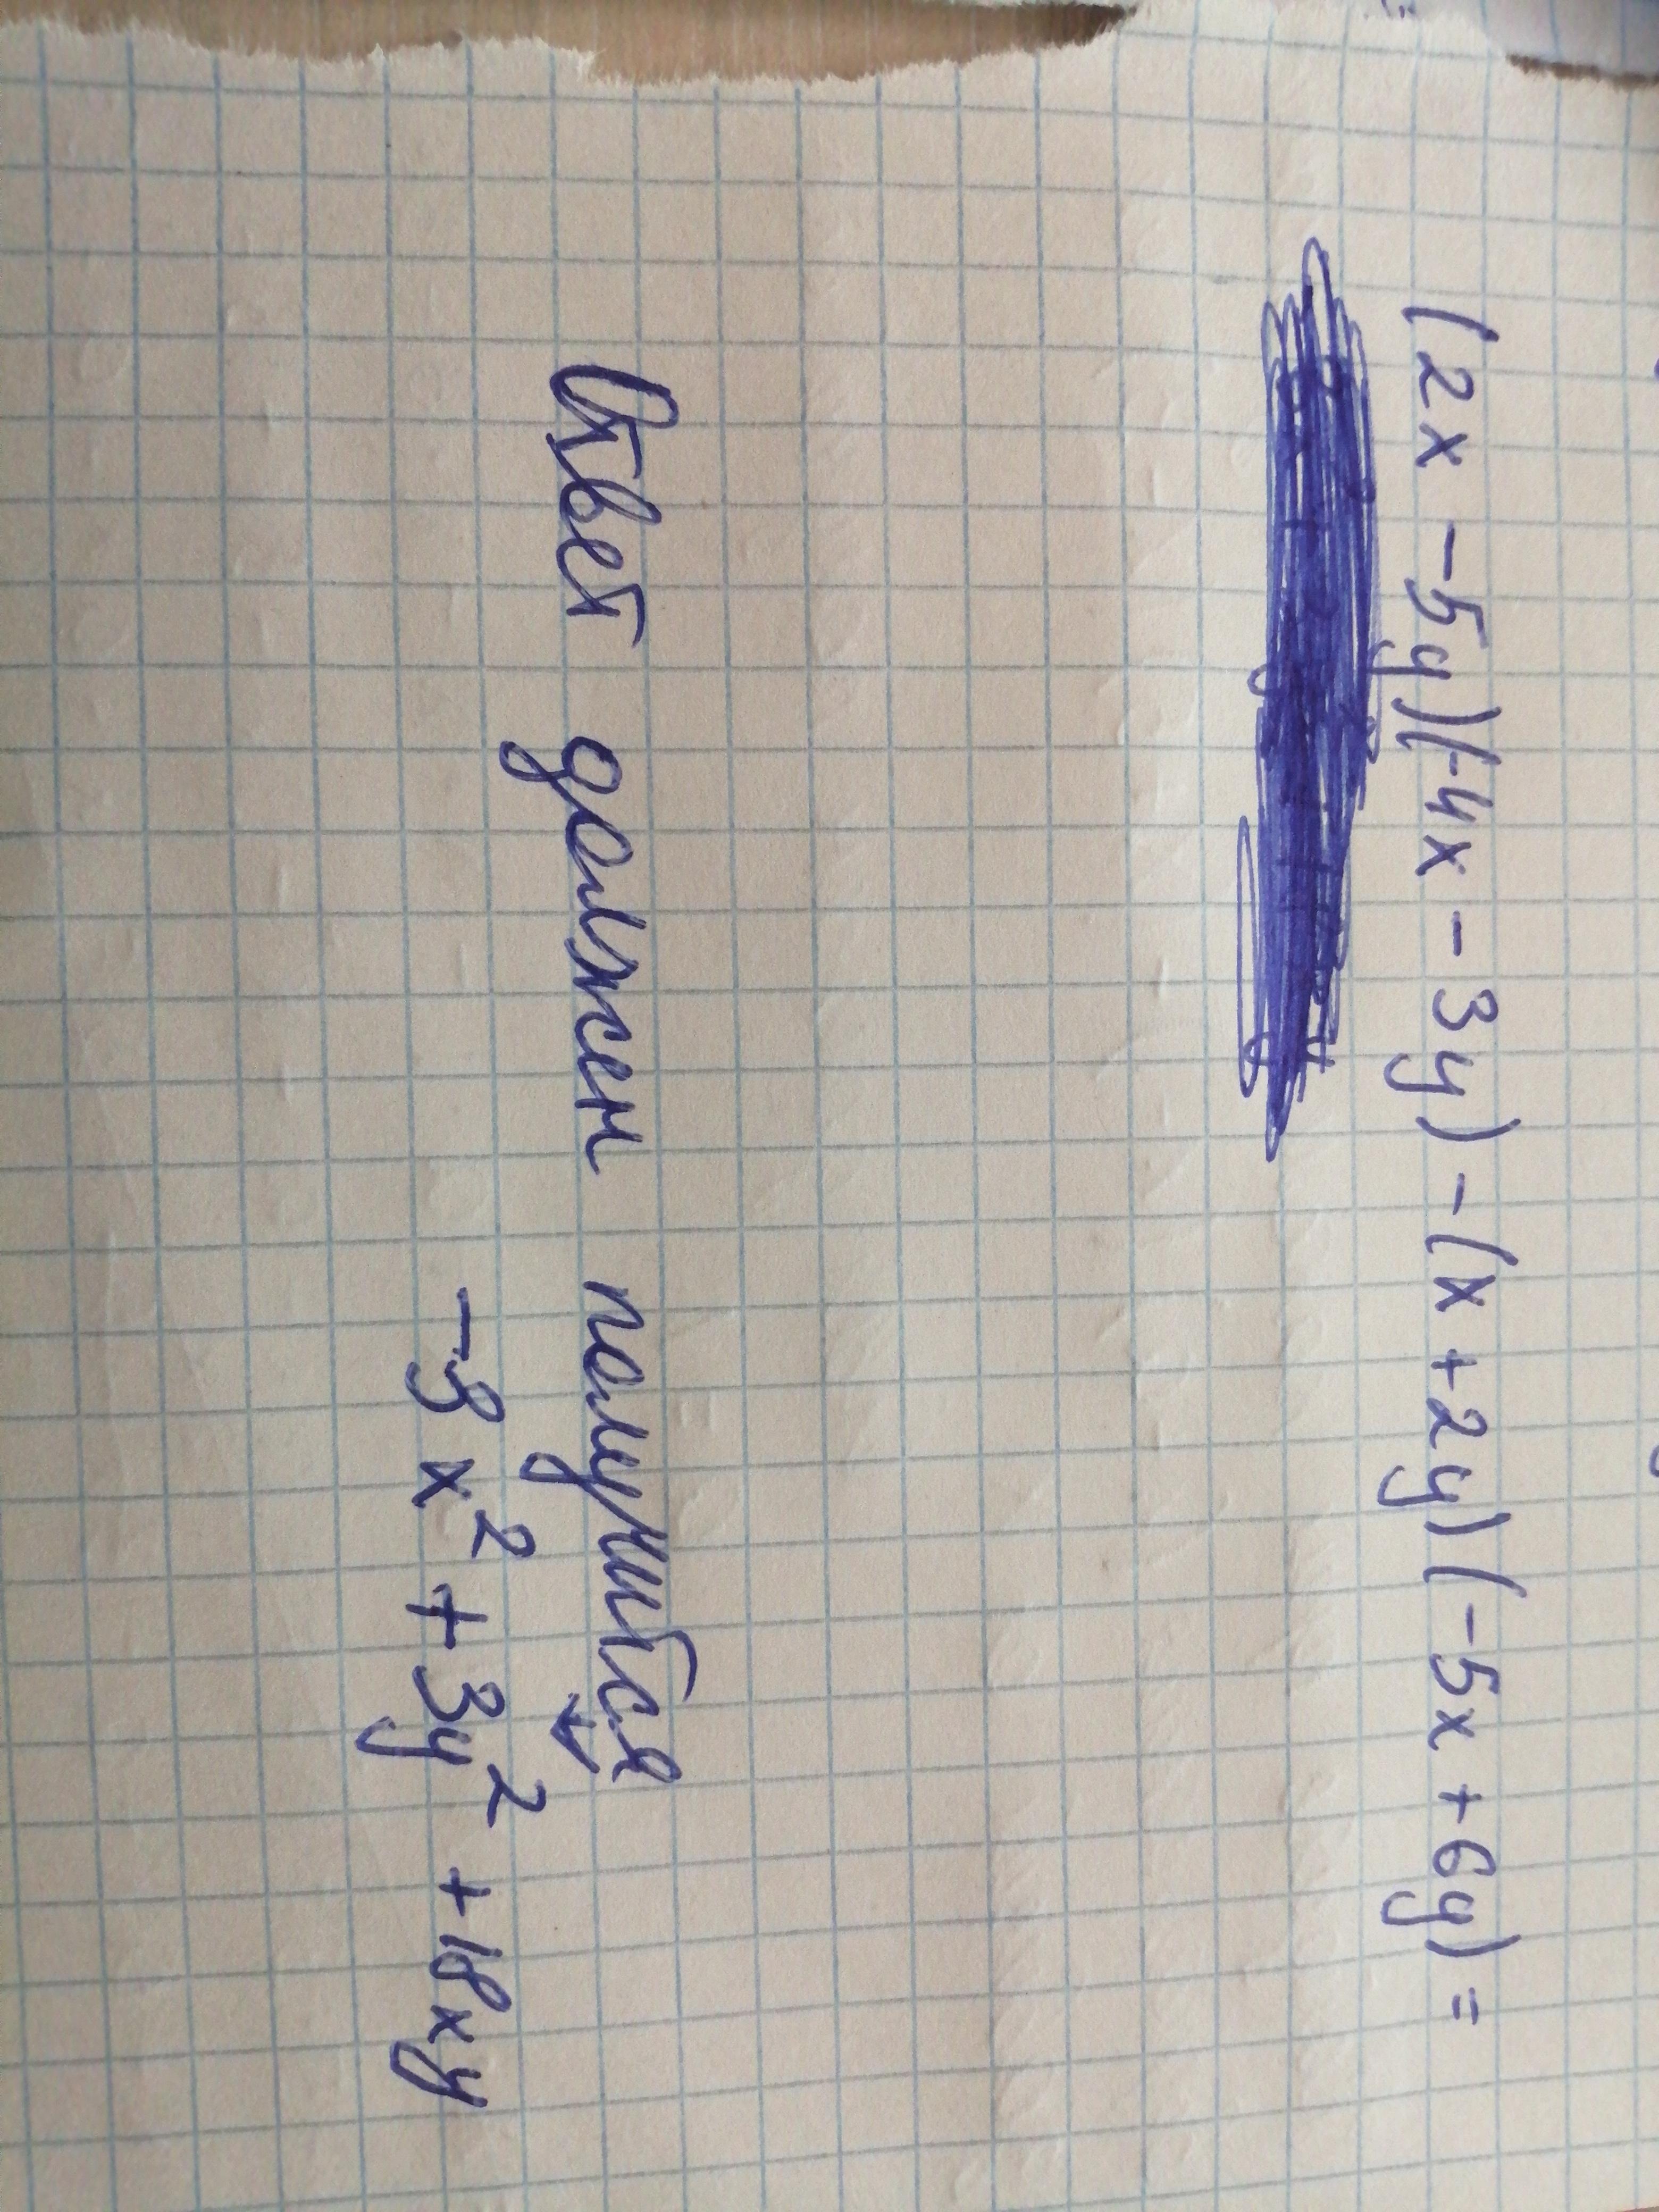 (2x - 5y)(-4x - 3y) - (x + 2y)(-5x + 6y) =
Ответ должен получиться ↓
-3x² + 3y² + 18xy